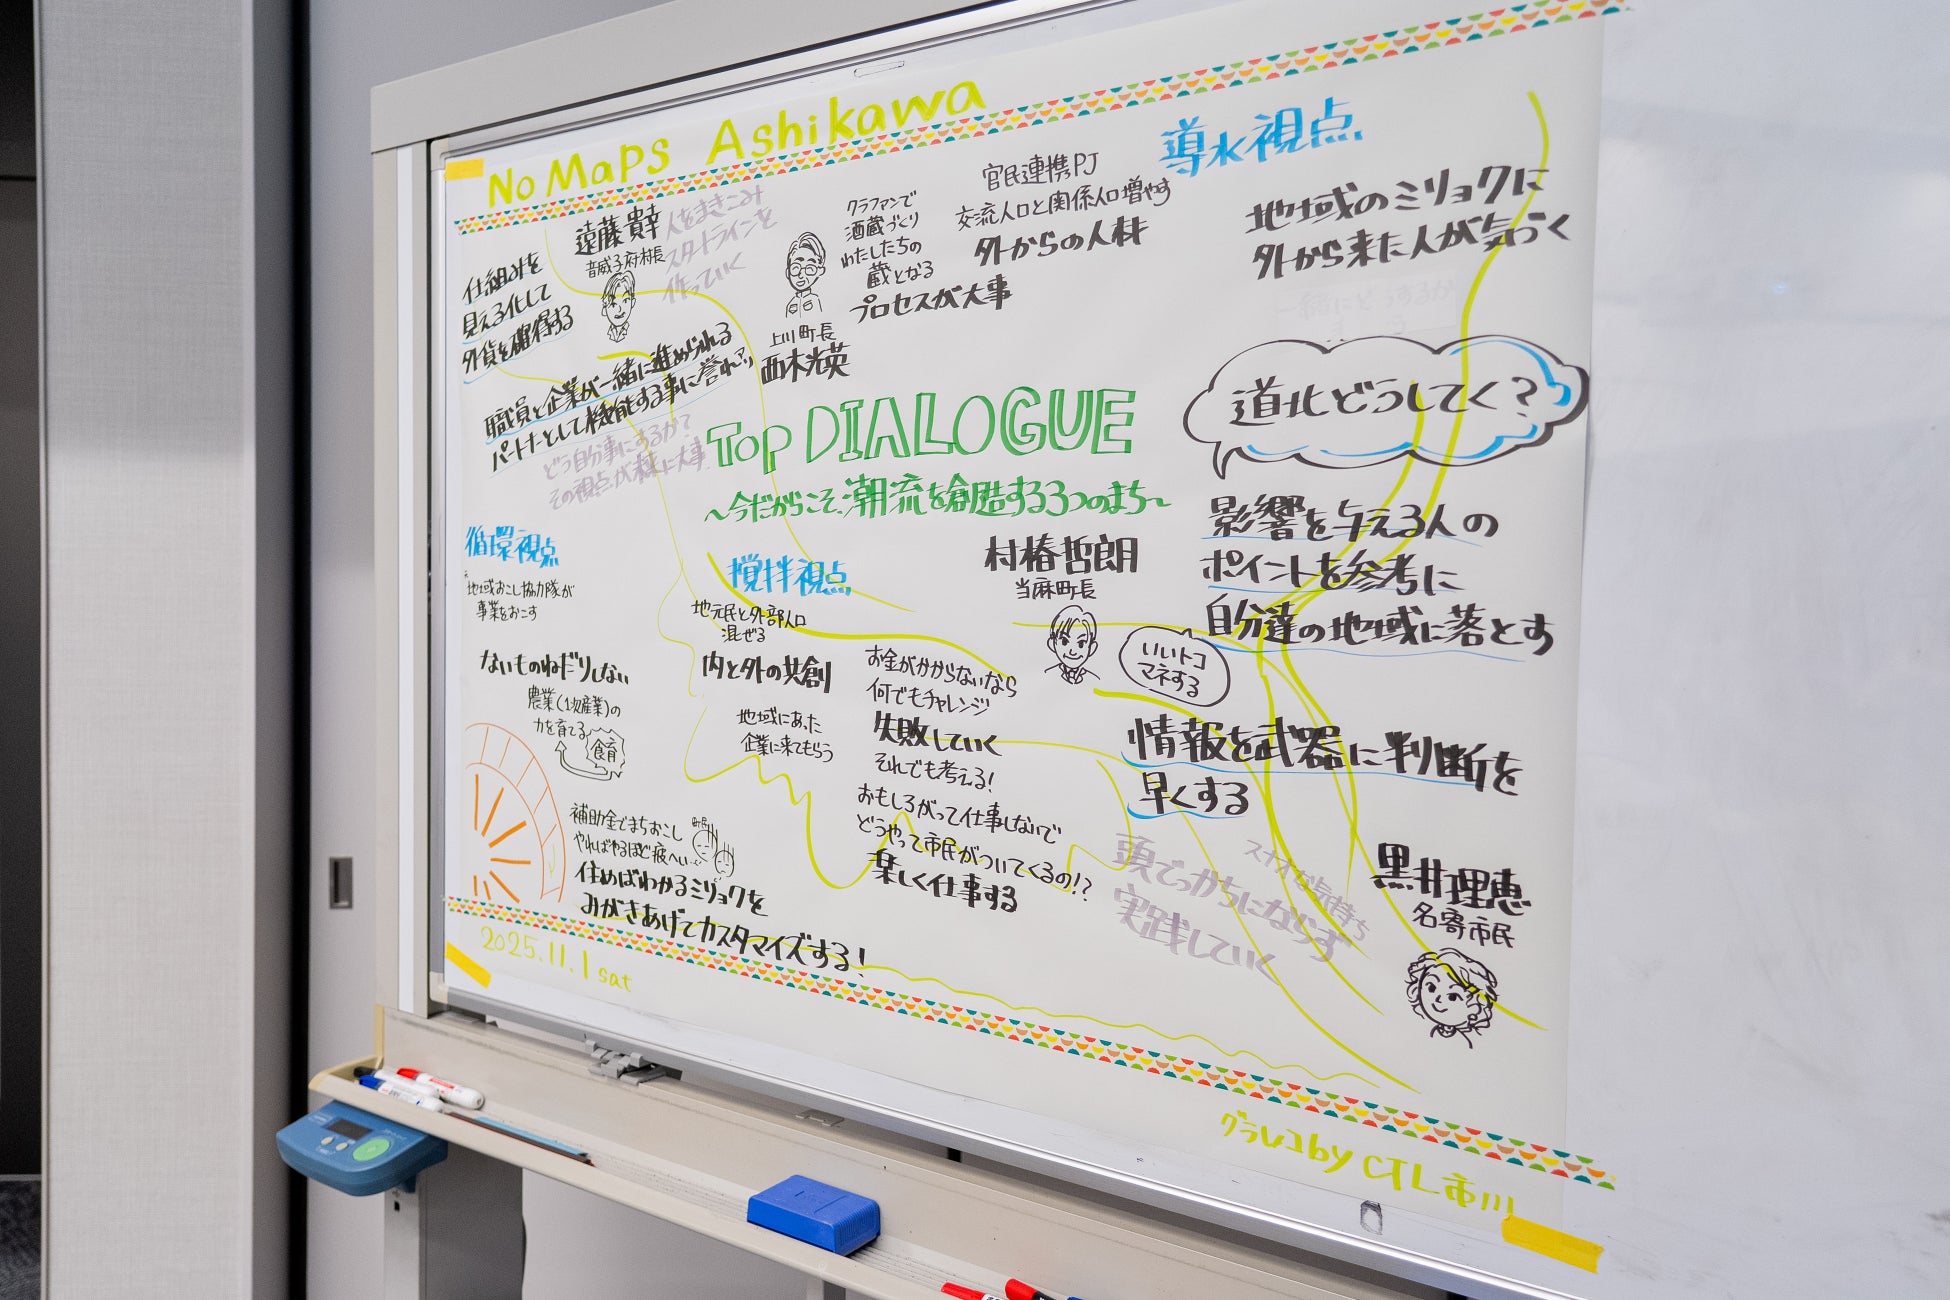 No Maps Ashikawa
遠藤貴幸
音威子府村長
人をまきこみ
スタートラインを
作っていく
仕組みを
見える化して
外貨を確保する
職員と企業が一緒に進められる
パートナーとして機能する事に
どう自分事にするか?
その視点が大事
クラファンで
酒蔵づくり
わたしたちの
蔵となる
プロセスが大事
上川町長
西木光英
官民連携PJ
交流人口と関係人口増やす
外からの人材
導水視点
地域のミリョクに
外から来た人が気づく
道北どうしてく?
Top DIALOGUE
〜今だからこそ、潮流を創造する3つのまち〜
影響を与える人の
ポイントを参考に
自分達の地域に落とす
循環視点
地域おこし協力隊が
事業をおこす
ないものねだりしない
農業(1次産業)の
力を育てる
食育
補助金でまちおこし
やればやるほど疲へい
町民
住めばわかるミリョクを
みがきあげてカスタマイズする!
撹拌視点
地元民と外部人口
混ぜる
内と外の共創
地域にあった
企業に来てもらう
村椿哲朗
当麻町長
いいトコ
マネする
お金がかからないなら
何でもチャレンジ
失敗していく
それでも考える!
おもしろがって仕事しないで
どうやって市民がついてくるの!?
楽しく仕事する
情報を武器に判断を
早くする
頭でっかちにならず
実践していく
スナオな気持ち
黒井理恵
名寄市民
2025.11.1 sat
グラレコ by CTL市川